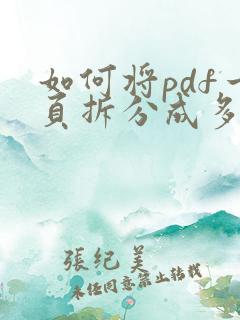 如何将pdf一
页拆分成多
張紀美
未经同意禁止转载